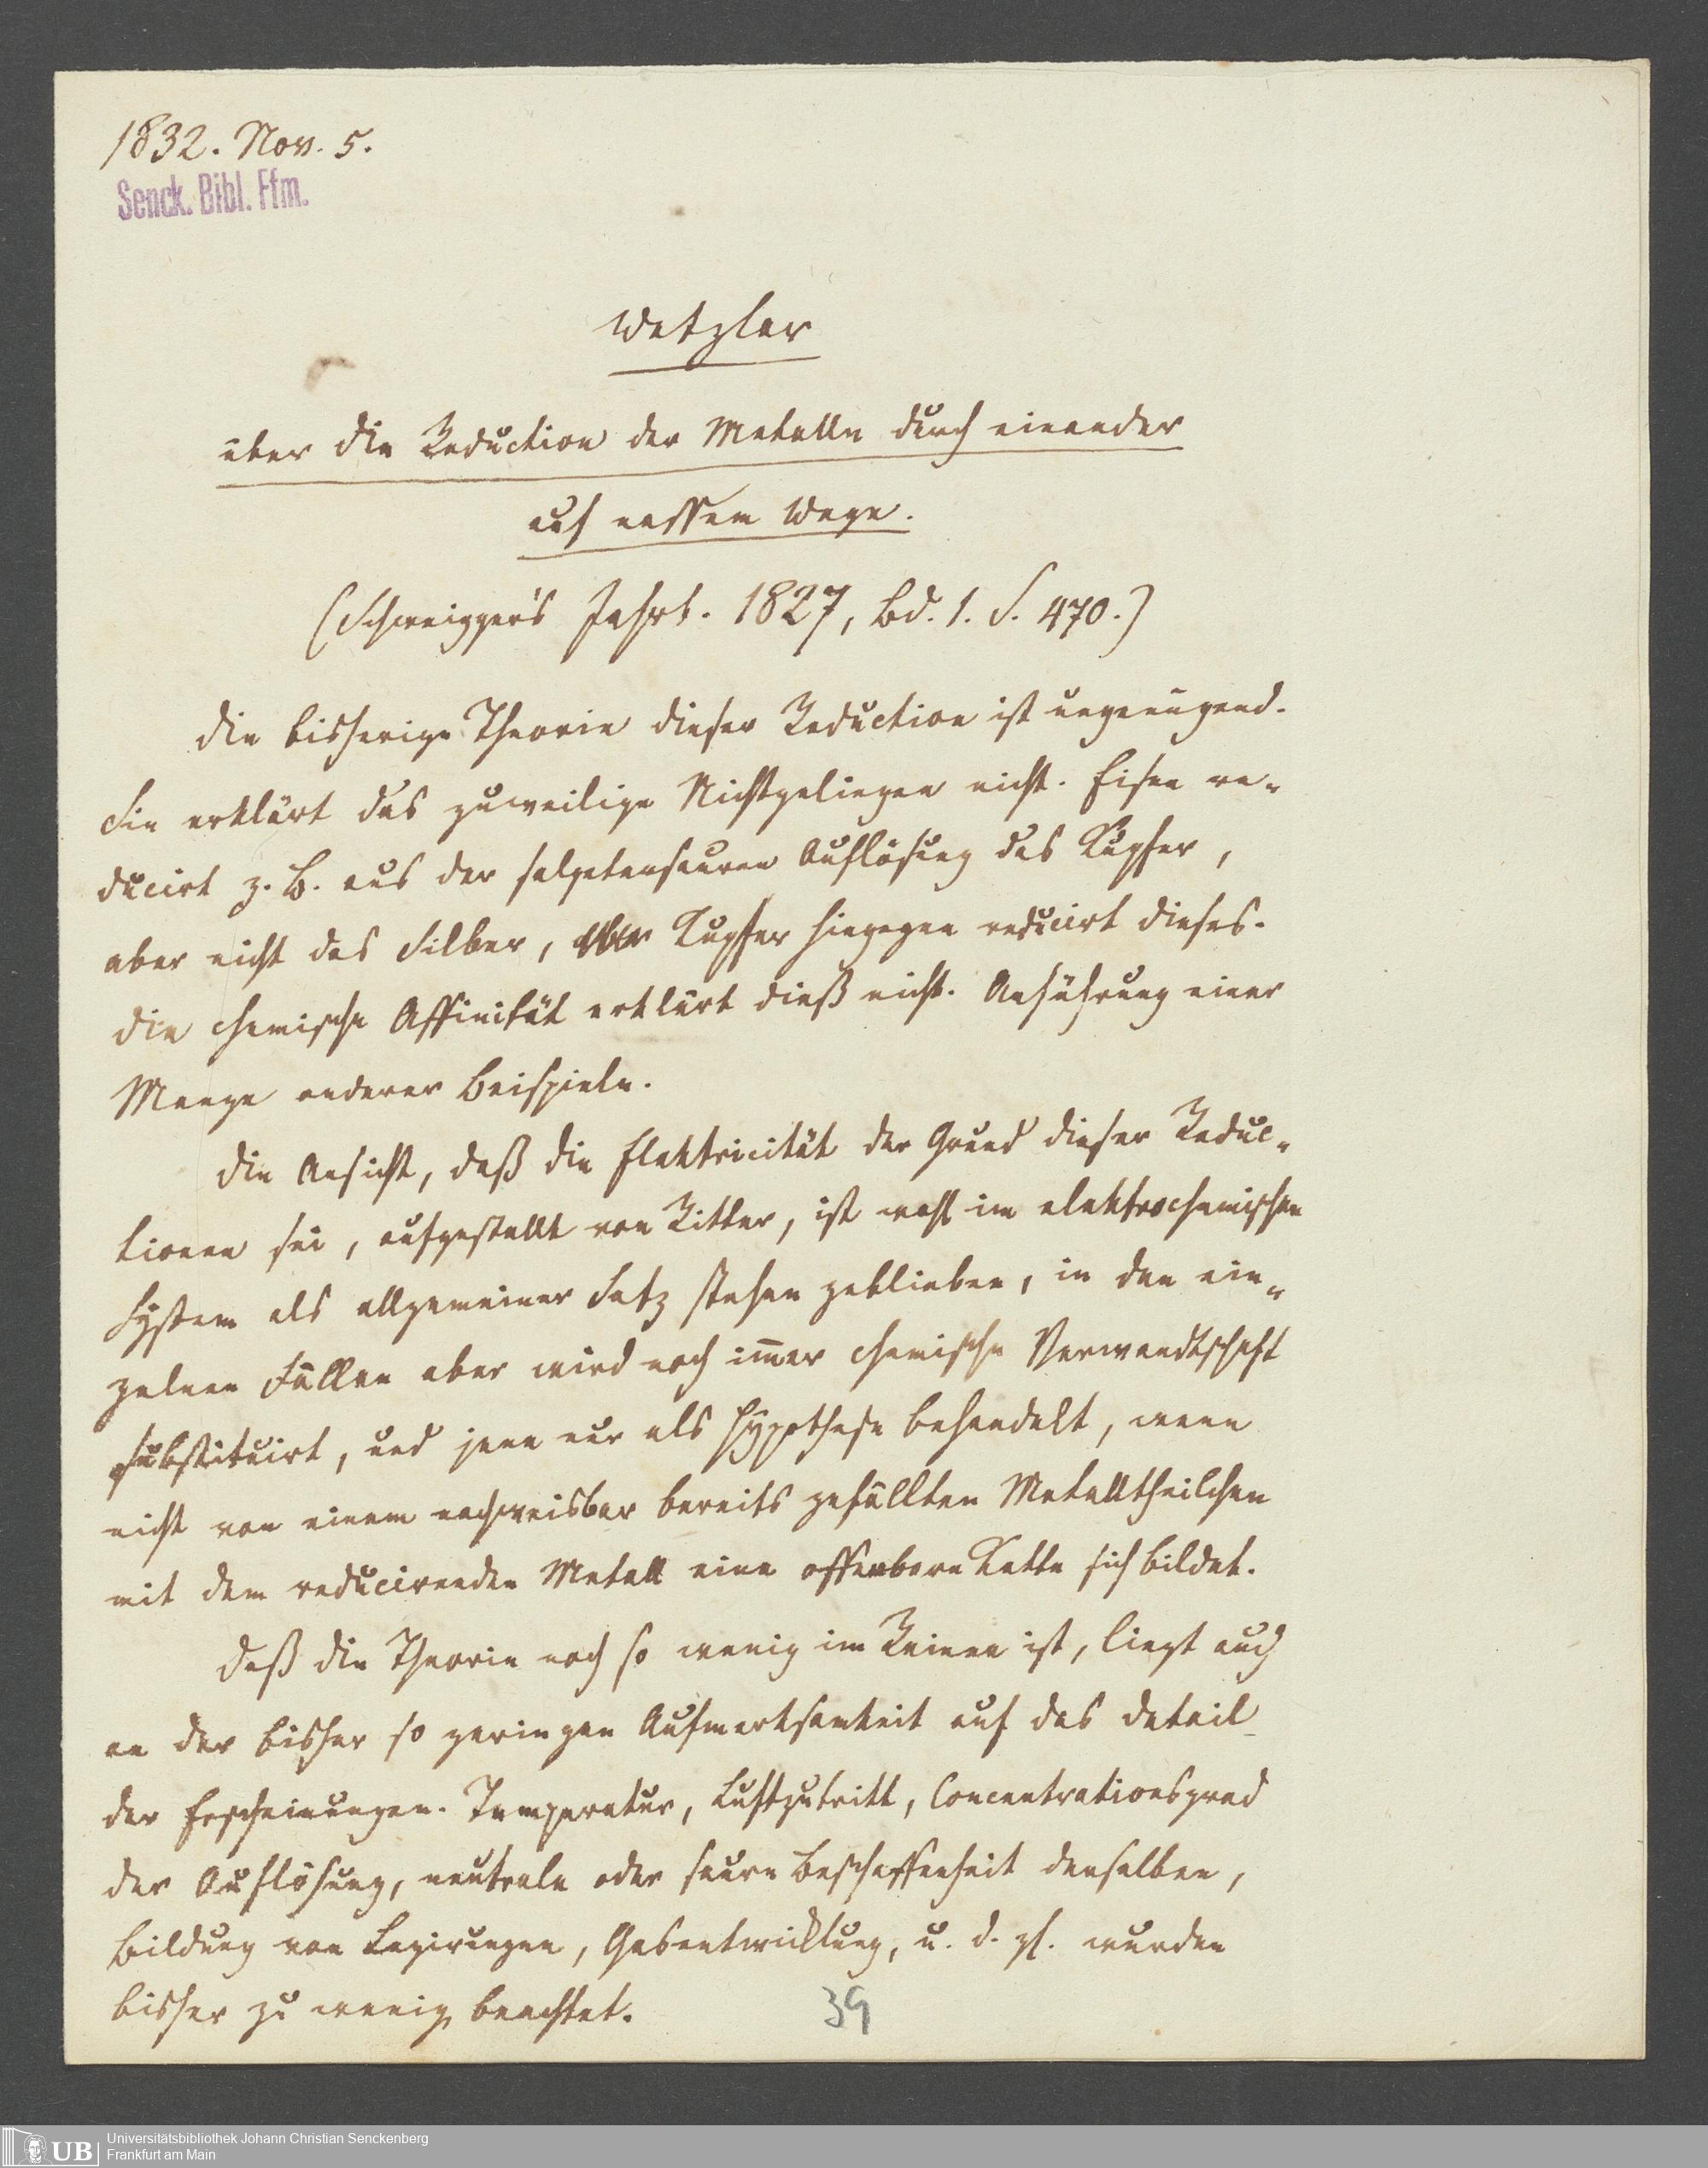 1832. Nov. 5.
Senck. Bibl. Ffm.
Wetzlar
über die Reduction der Metalle durch einander
auf nassem Wege.
(Schweigger's Jahrb. 1827, Bd. 1. S. 470.)
Die bisherige Theorie dieser Reduction ist ungenügend.
Sie erklärt das zuweilige Nichtgelingen nicht. Eisen re-
ducirt z. B. aus der salpetersauren Auflösung das Kupfer,
aber nicht das Silber, Kupfer hingegen reducirt dieses.
Die chemische Affinität erklärt dieß nicht. Anführung einer
Menge anderer Beispiele.
Die Ansicht, daß die Elektricität der Grund dieser Reduc-
tionen sei, aufgestellt von Ritter, ist wohl im elektrochemischen
System als allgemeiner Satz stehen geblieben, in den ein-
zelnen Fällen aber wird noch im̄er chemische Verwandtschaft
substituirt, und jene nur als Hypothese behandelt, wenn
nicht von einem nachweisbar bereits gefällten Metalltheilchen
mit dem reducirenden Metall eine offenbare Kette sich bildet.
Daß die Theorie noch so wenig im Reinen ist, liegt auch
an der bisher so geringen Aufmerksamkeit auf das Detail
der Erscheinungen. Temperatur, Luftzutritt, Concentrationsgrad
der Auflösung, neutrale oder saure Beschaffenheit derselben,
Bildung von Legirungen, Gasentwicklung, u. d. gl. wurden
bisher zu wenig beachtet.
39
UB
Universitätsbibliothek Johann Christian Senckenberg
Frankfurt am Main